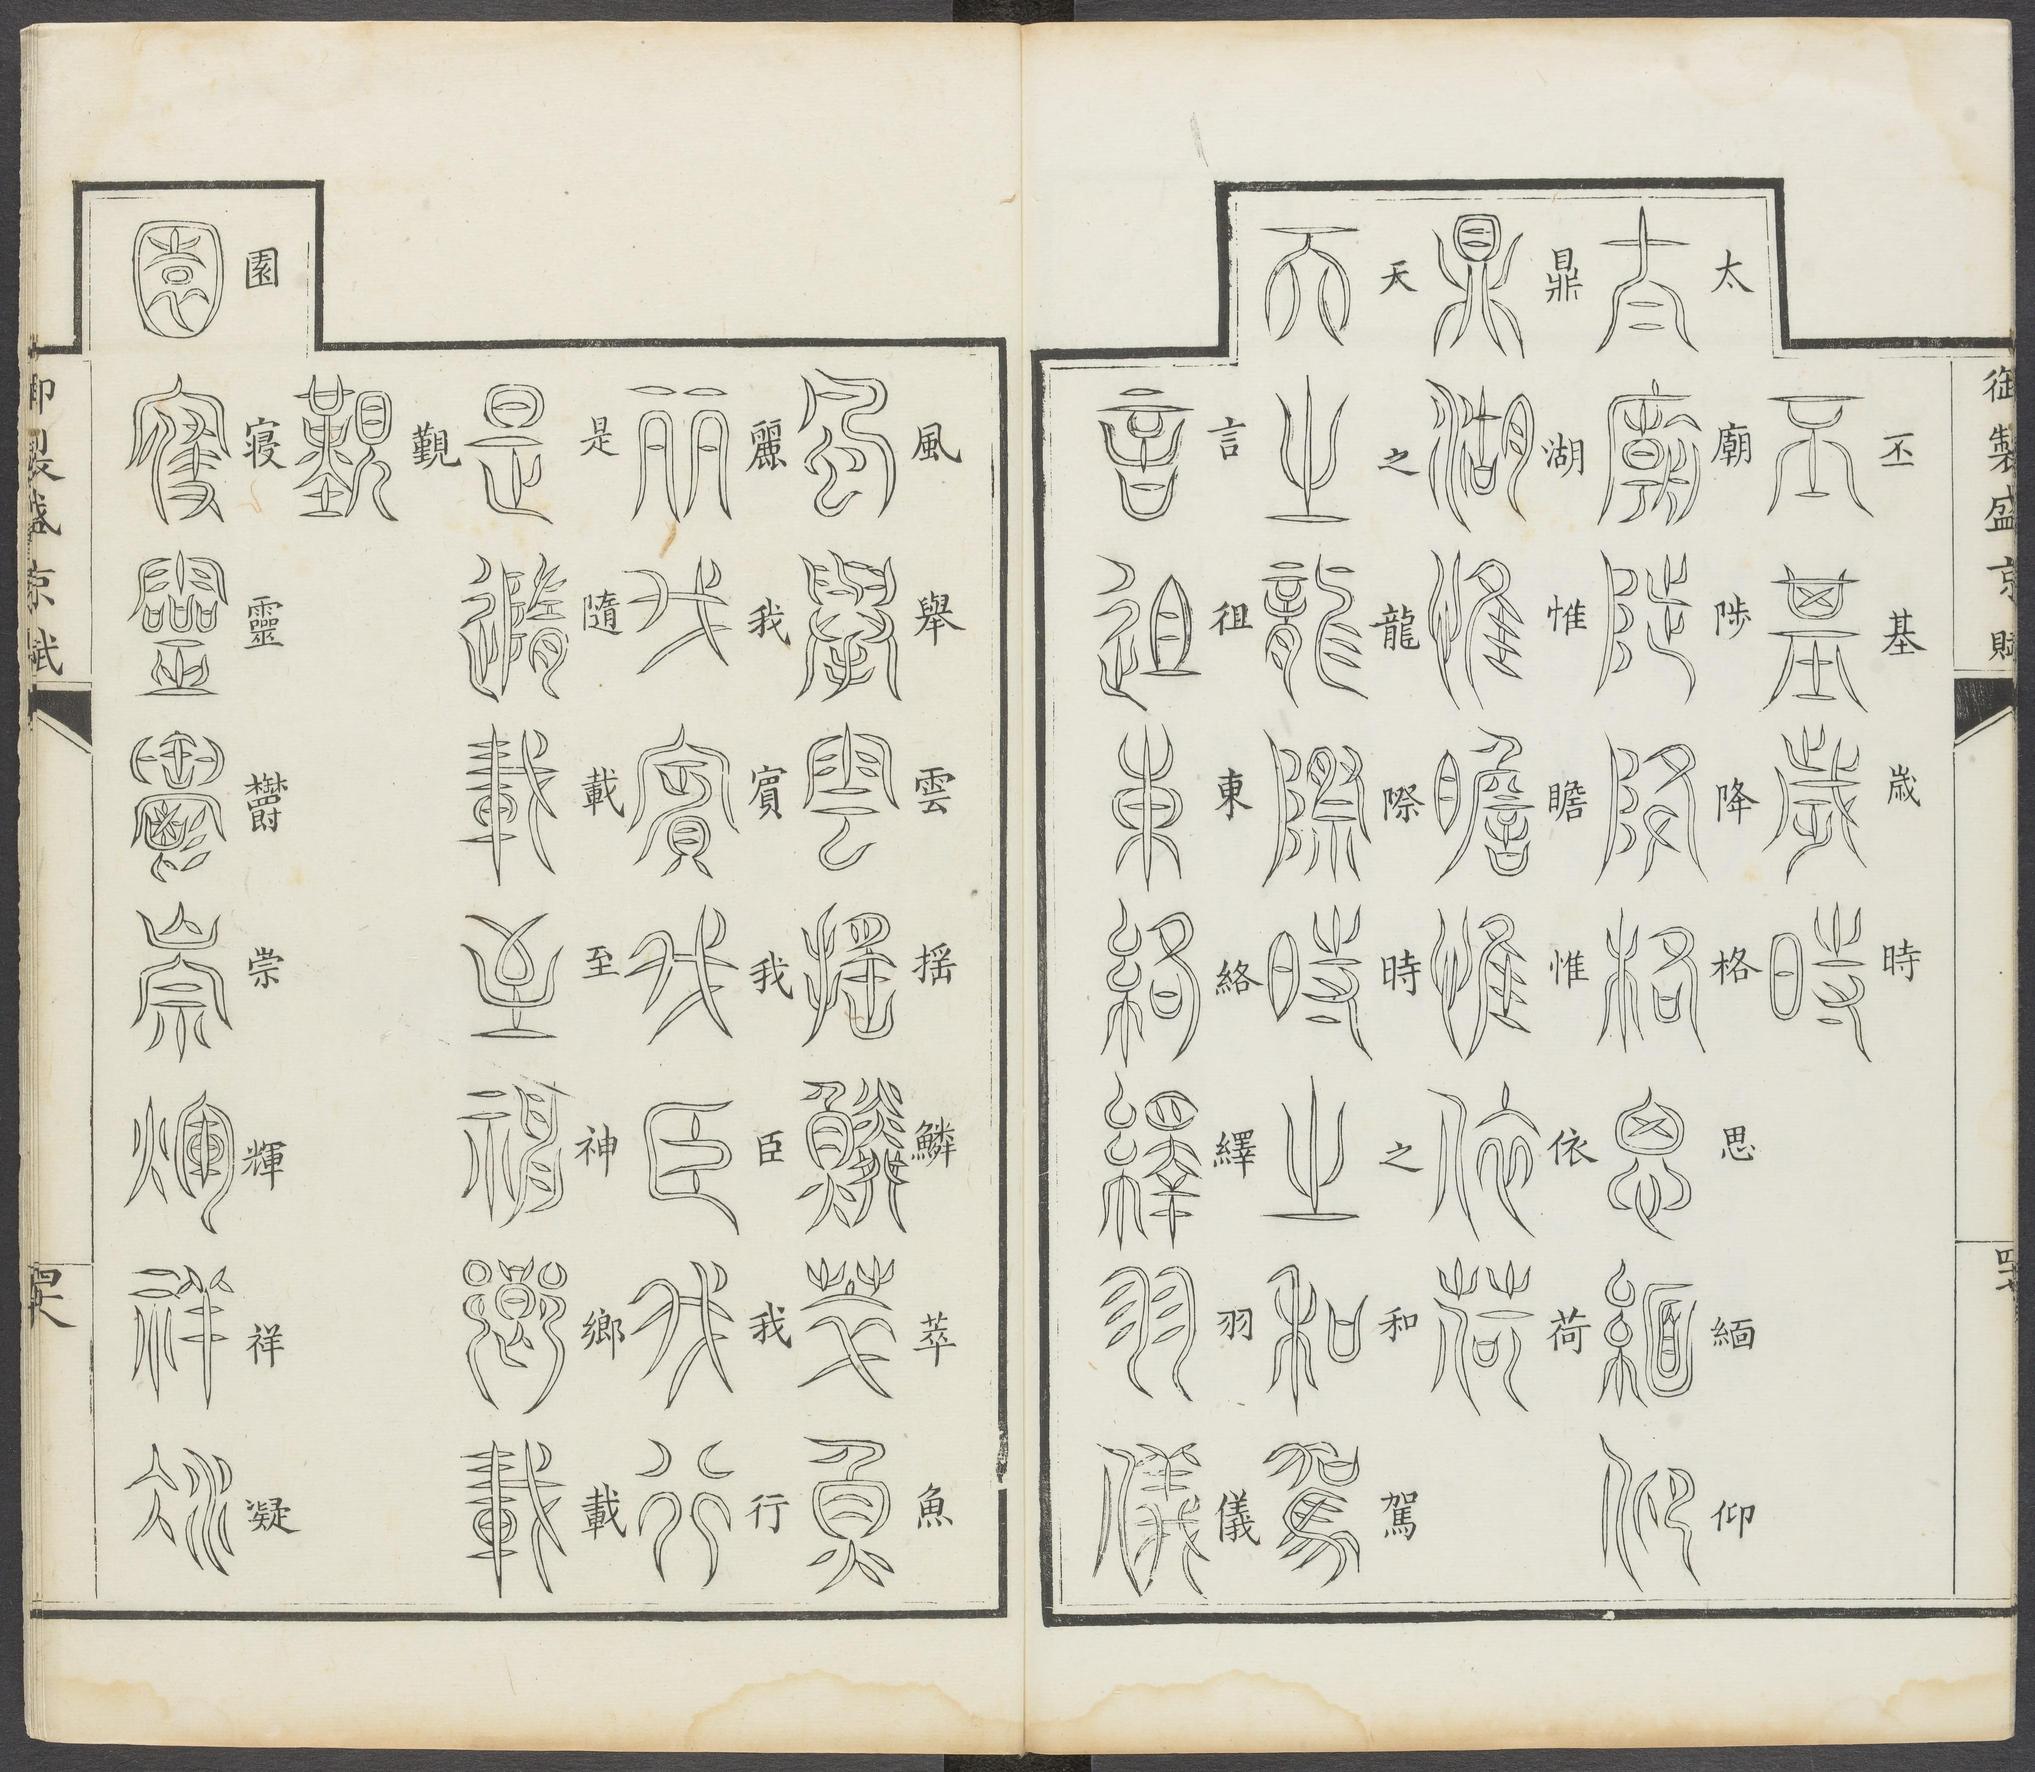 御製盛京賦
丕基歲時
太廟陟降格思緬仰
鼎湖惟瞻惟依荷
天之龍際時之和駕
言徂東絡繹羽儀
風舉雲揺鱗萃魚
麗我賓我臣我行
是隨載至神鄉載
覲
園寝靈欝崇輝祥凝
御製盛京賦